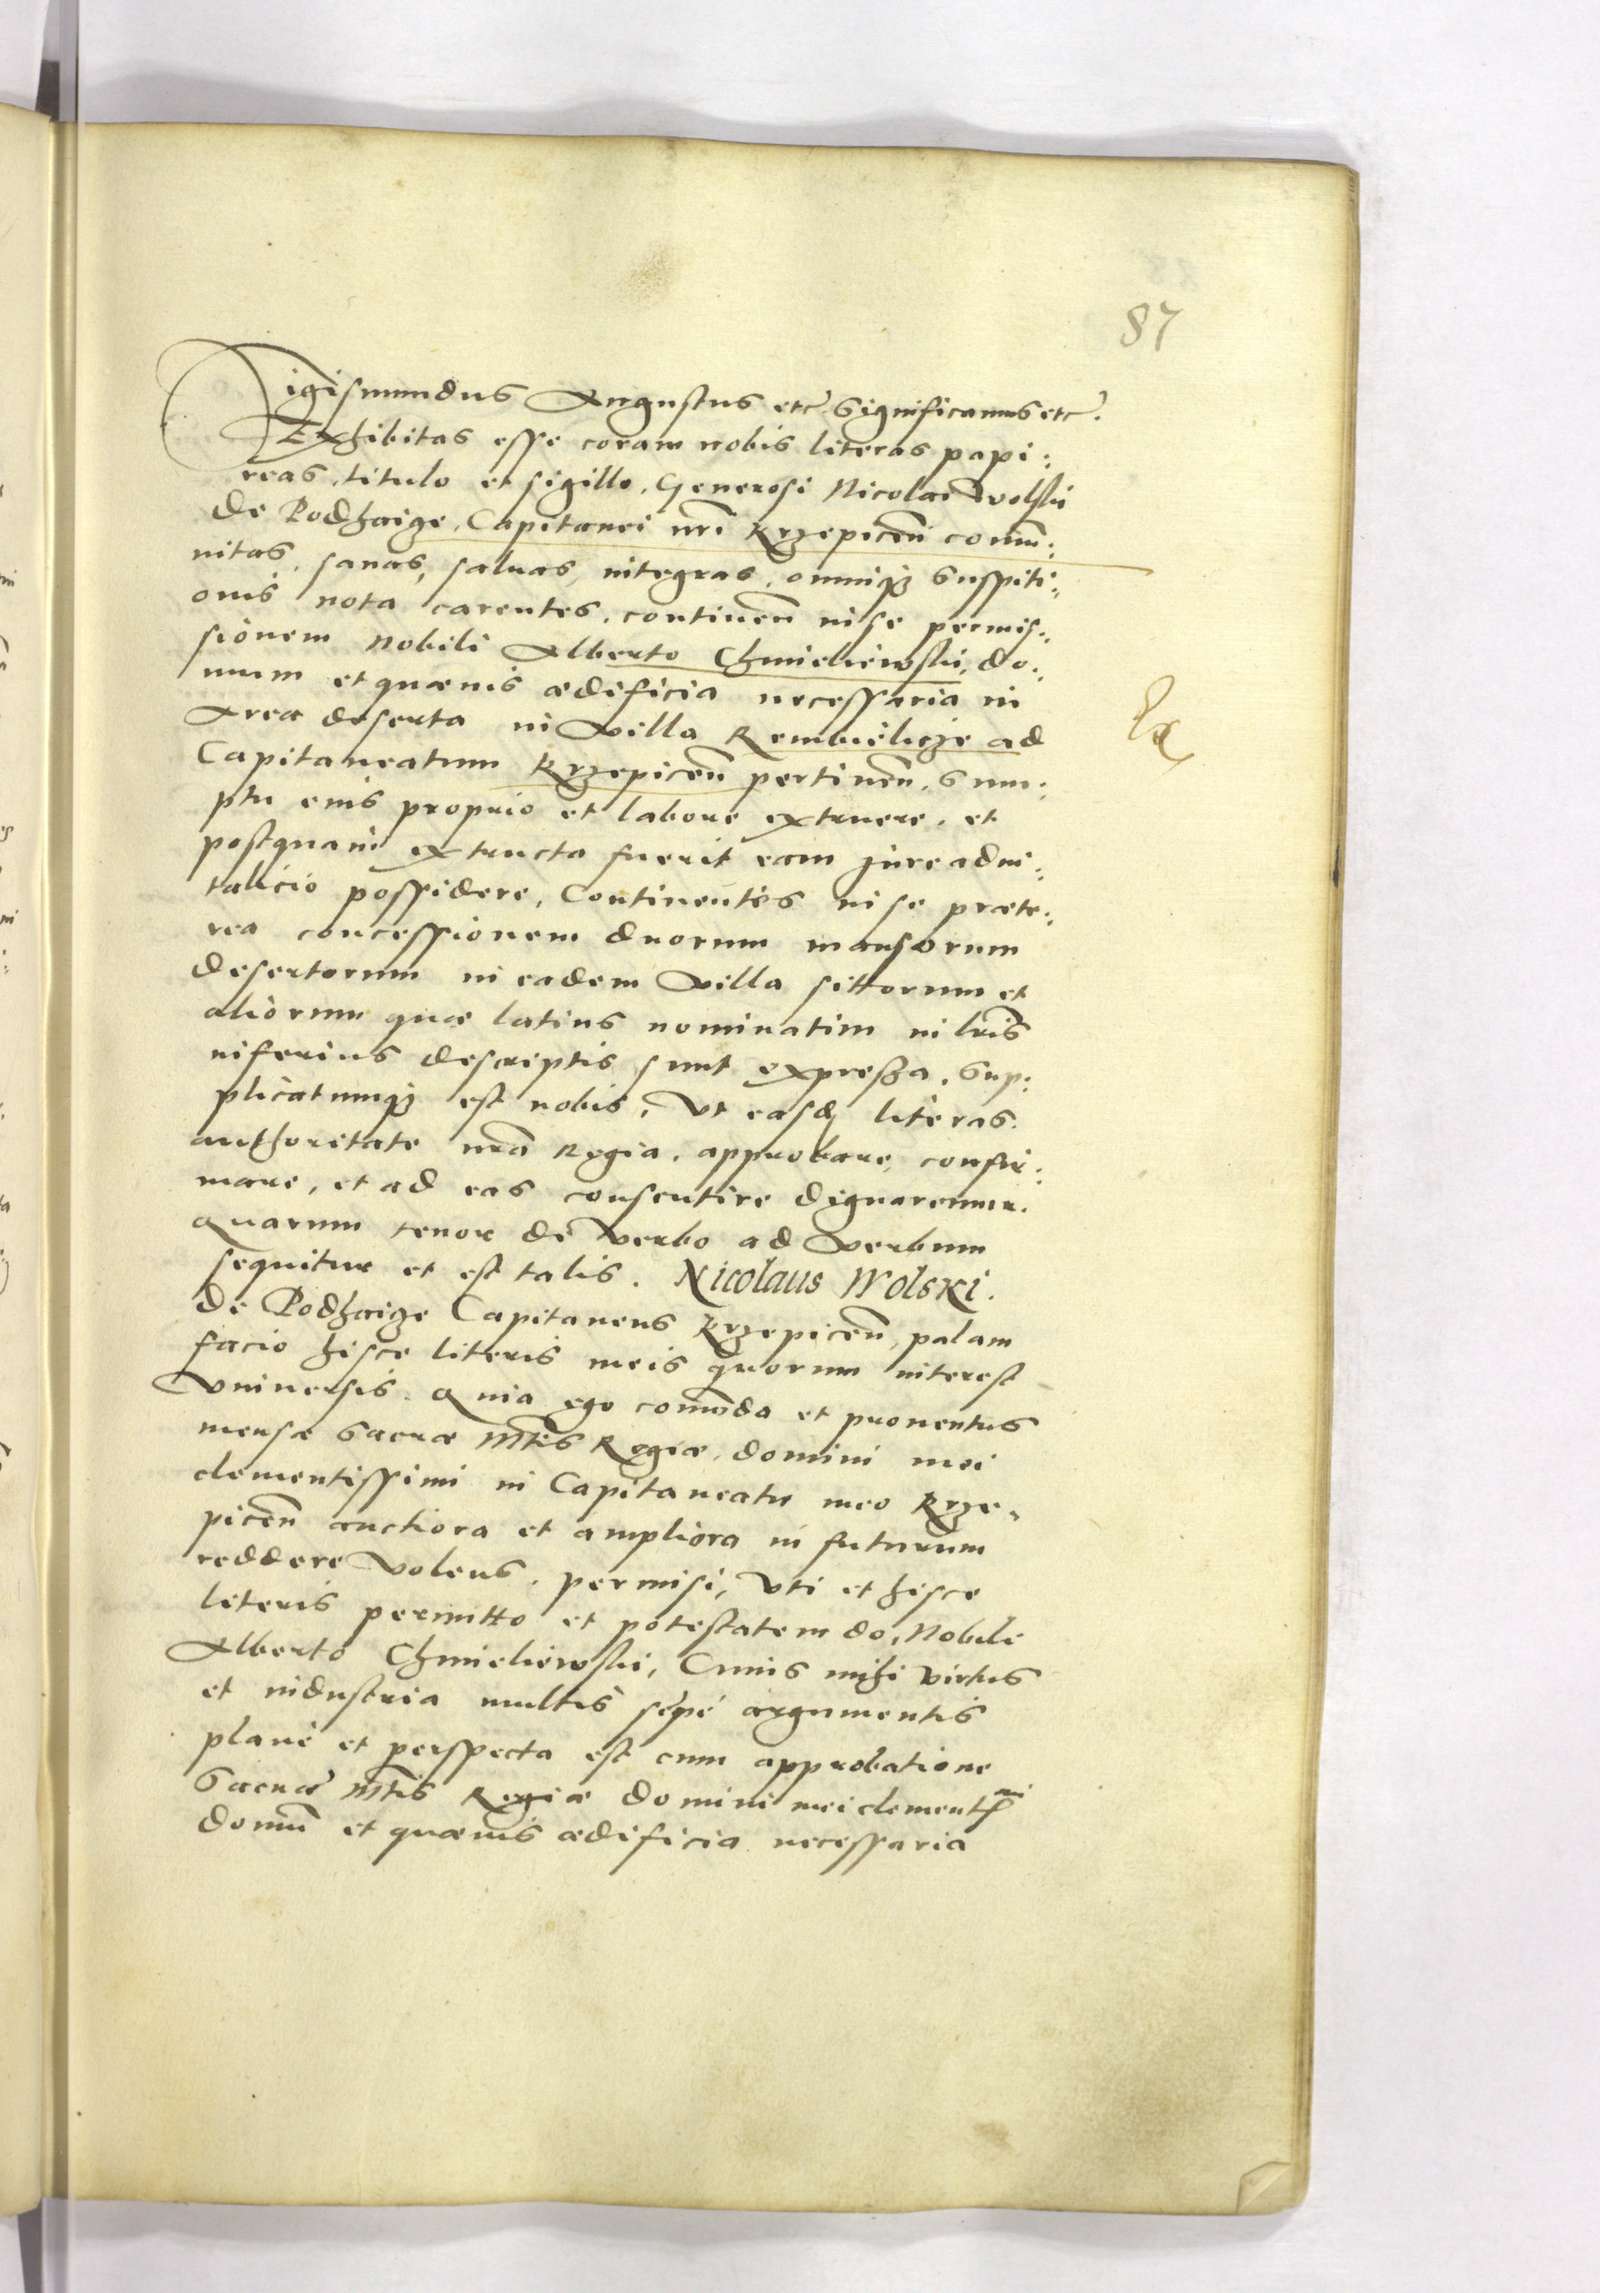 87
Sigismundus Augustus etc. Significamus etc.
Exhibitas esse coram nobis literas papi:
reas, titulo et sigillo, Generosi Nicolai Wolski
de Podhaige, Capitanei nri Krzepicen̄ com̄u:
nitas, sanas, saluas, integras, omniq3 suspiti:
onis nota carentes, continen̄ in se permis:
sionem Nobili Alberto Chmieliewski, do:
mum et quæuis ædificia necessaria in
Area deserta in Villa Rembielicze ad
Capitaneatum Krzepicen̄ pertinen̄, sum:
ptu eius proprio et labore extruere, et
postquam extructa fuerit eam jure adui:
talicio possidere, Continentes in se præte:
rea concessionem duorum mansorum
desertorum in eadem Villa sittorum et
aliorum quæ latius nominatim in lris
inferius descriptis sunt expressa, Sup:
plicatumq3 est nobis, Vt easd literas
authoritate nra Regia, approbare, confir:
mare, et ad eas consentire dignaremur.
Quarum tenor de Verbo ad Verbum
sequitur et est talis. Nicolaus Wolski.
de Podhaige Capitaneus Krzepicen̄, palam
facio hisce literis meis quorum interest
Vniuersis. Quia ego com̄oda et prouentus
mensæ Sacræ Mtis Regiæ, domini mei
clementissimi in Capitaneatu meo Krze:
picen̄ auctiora et ampliora in futurum
reddere Volens, permisi, Vti et hisce
literis permitto et potestatem do, Nobili
Alberto Chmieliewski, Cuius mihi Virtus
et industria multis sępe argumentis
plane et perspecta est cum approbatione
Sacræ Mtis Regiæ domini mei clementmi
domū et quæuis ædificia necessaria